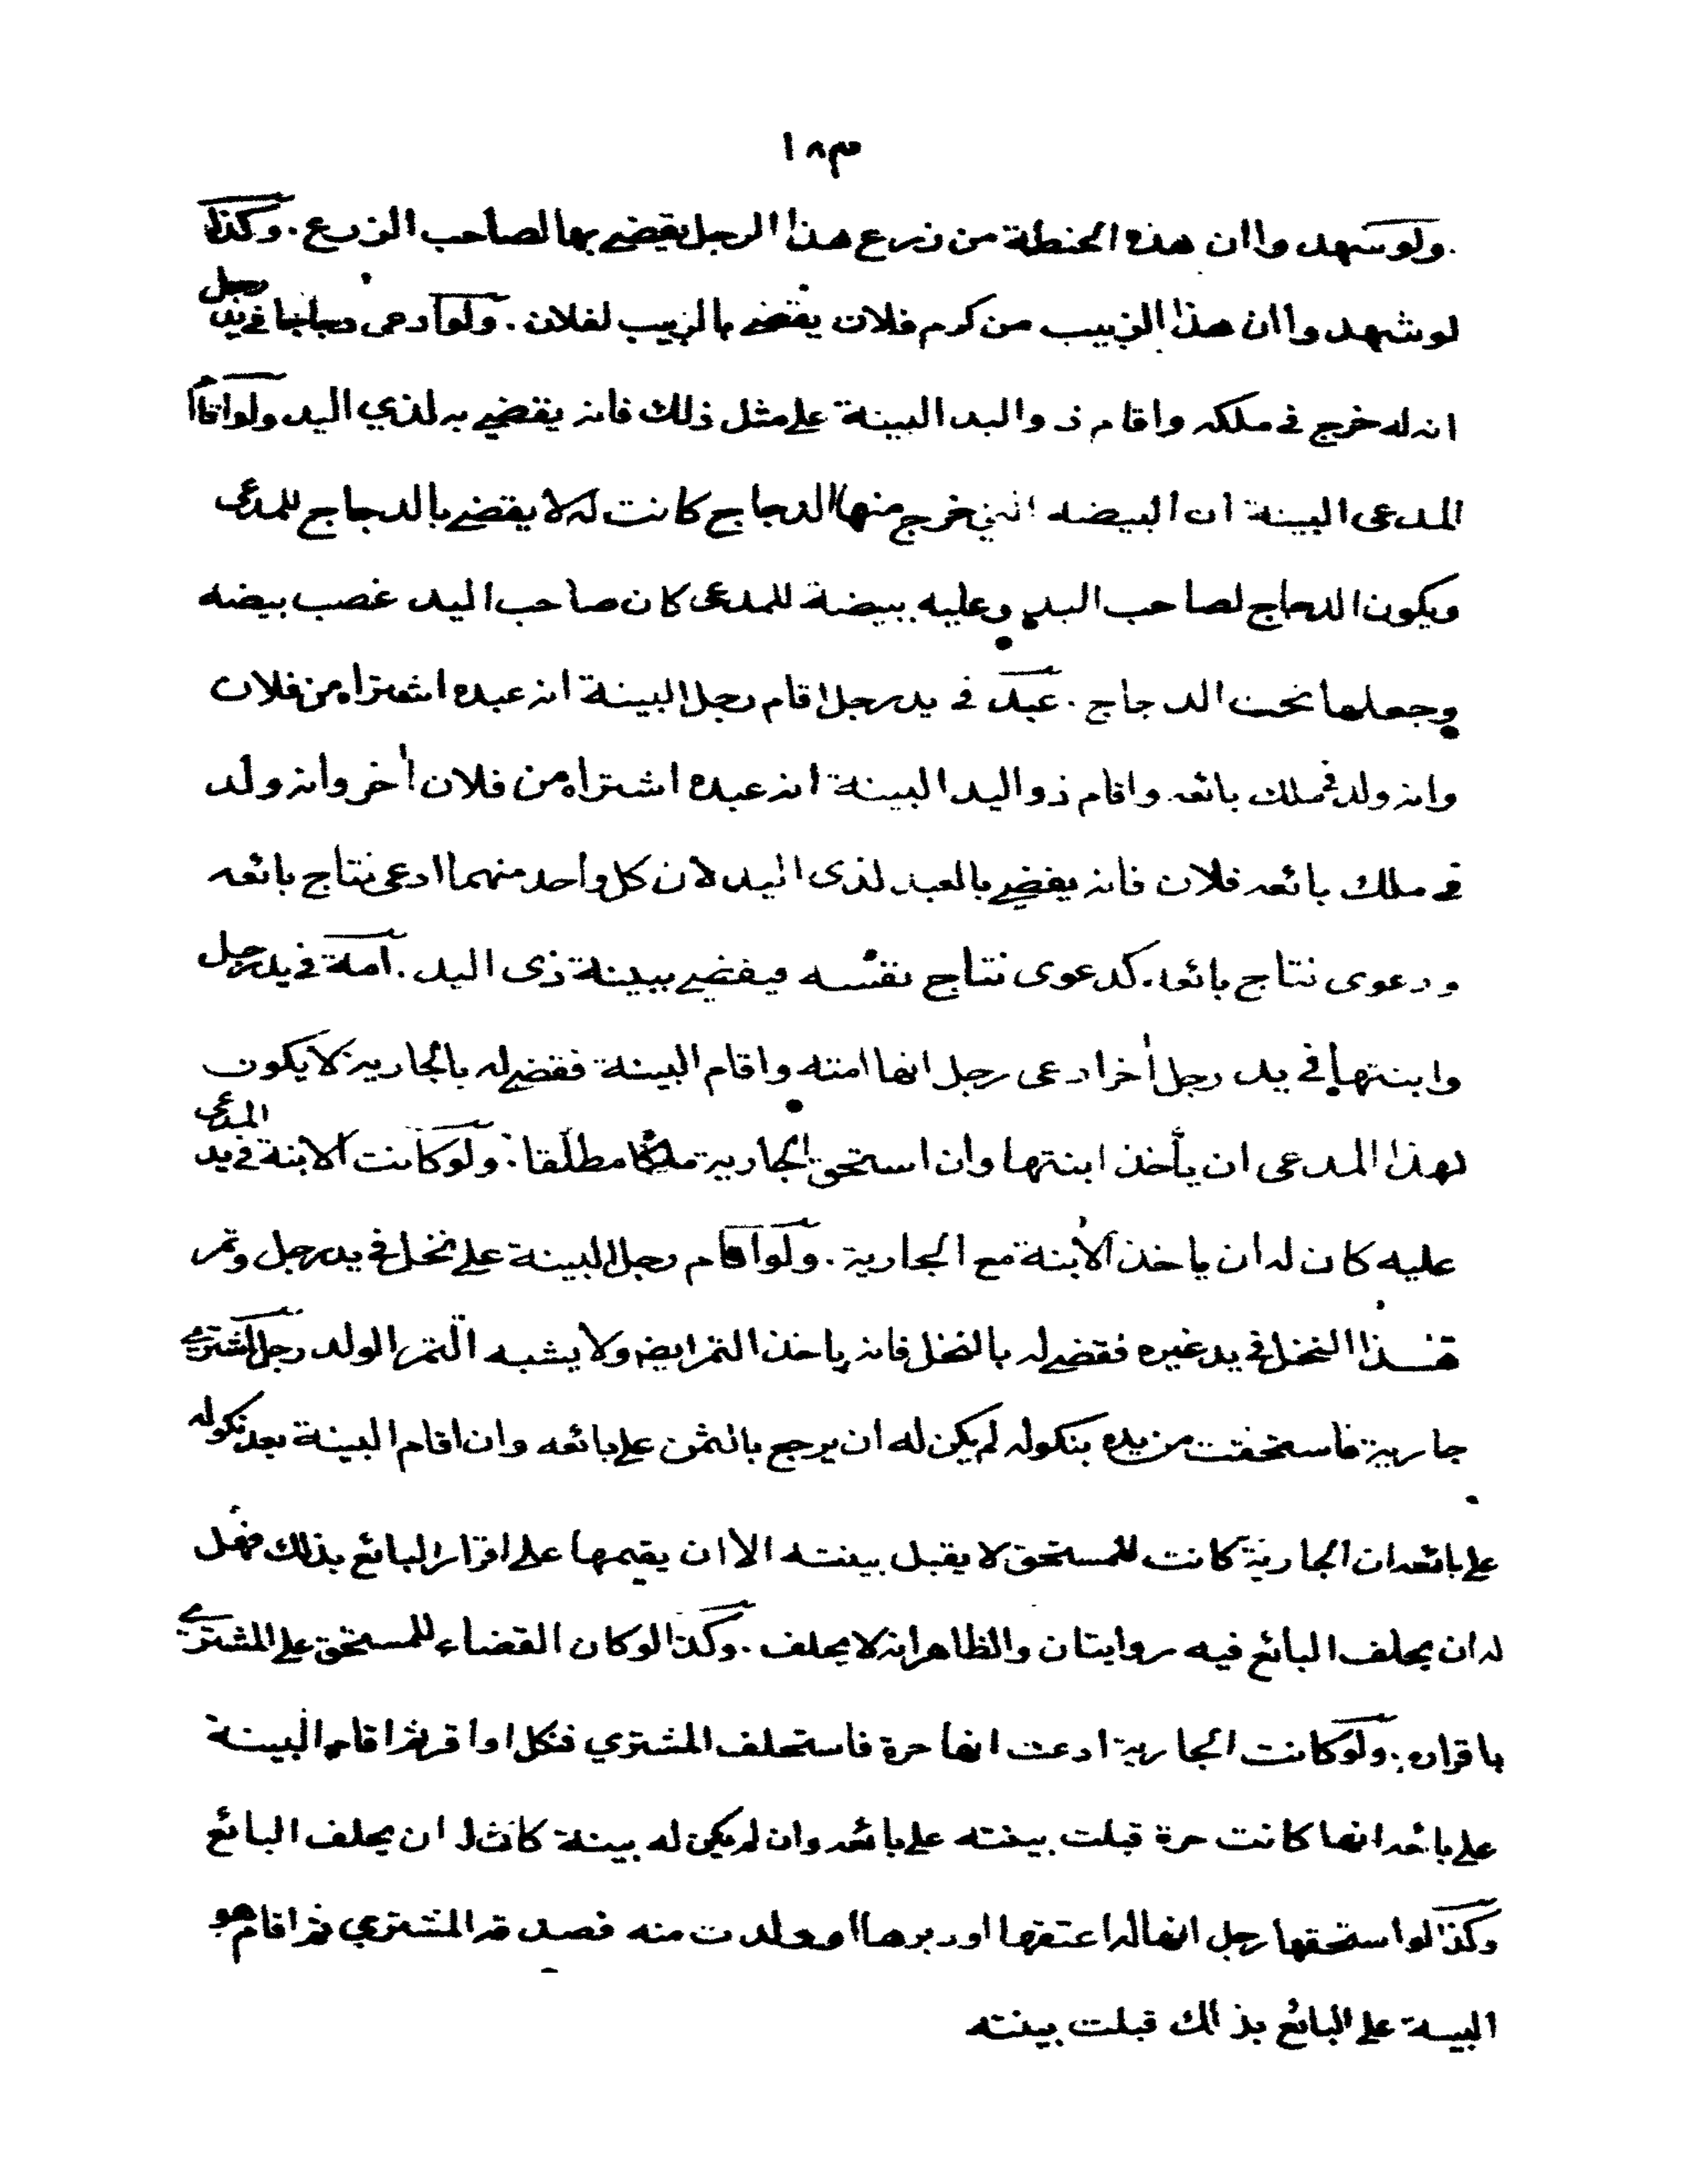 ١٨٣
ولو شهدوا ان هذه الحنطة من زرع هذا الرجل يقضى بها لصاحب الزرع. وكذا
لو شهدوا ان هذا الزبيب من كرم فلان يقضى بالزبيب لفلان. ولو ادعى دجاجا في يد رجل
انه له خرج في ملكه واقام ذو اليد البينة على مثل ذلك فانه يقضي به لذي اليد ولو اقام
المدعى البينة ان البيضه التي خرج منها الدجاج كانت له لا يقضى بالدجاج للمدعى
ويكون الدجاج لصاحب اليد وعليه بيضة للمدعى كان صاحب اليد غصب بيضه
وجعلها تحت الدجاج. عبد في يد رجل اقام رجل البينة انه عبده اشتراه من فلان
وانه ولد في ملك بائعه واقام ذو اليد البينة انه عبده اشتراه من فلان أخر وانه ولد
في ملك بائعه فلان فانه يقضي بالعبد لذى اليد لان كل واحد منهما ادعى نتاج بائعه
ودعوى نتاج بائعه كدعوى نتاج نفسه فيقضى ببينة ذى اليد. امة في يد رجل
وابنتها في يد رجل أخر ادعى رجل انها امته واقام البينة فقضى له بالجارية لا يكون
لهذا المدعى ان يأخذ ابنتها وان استحق الجارية ملكا مطلقا. ولو كانت الابنة في يد المدعى
عليه كان له ان ياخذ الابنة مع الجارية. ولو اقام رجل البينة على نخل في يد رجل وتمر
هذا النخل في يد غيره فقضى له بالنخل فانه ياخذ التمر ايضا ولا يشبه التمر الولد رجل اشترى
جارية فاستحقت من يده بنكوله لم يكن له ان يرجع بالثمن على بائعه وان اقام البينة بعد نكوله
على بائعه ان الجارية كانت للمستحق لا يقبل بينته الا ان يقيمها على اقرار البائع بذلك فهل
له ان يحلف البائع فيه روايتان والظاهر انه لا يحلف. وكذا لو كان القضاء للمستحق على المشتري
باقراره. ولو كانت الجارية ادعت انها حرة فاستحلف المشتري فنكل او اقر ثم اقام البينة
على بائعه انها كانت حرة قبلت بينته على بائعه وان لم يكن له بينة كان له ان يحلف البائع
وكذا لو استحقها رجل انها له اعتقها او دبرها او ولدت منه فصدقه المشتري ثم اقام هو
البينة على البائع بذالك قبلت بينته